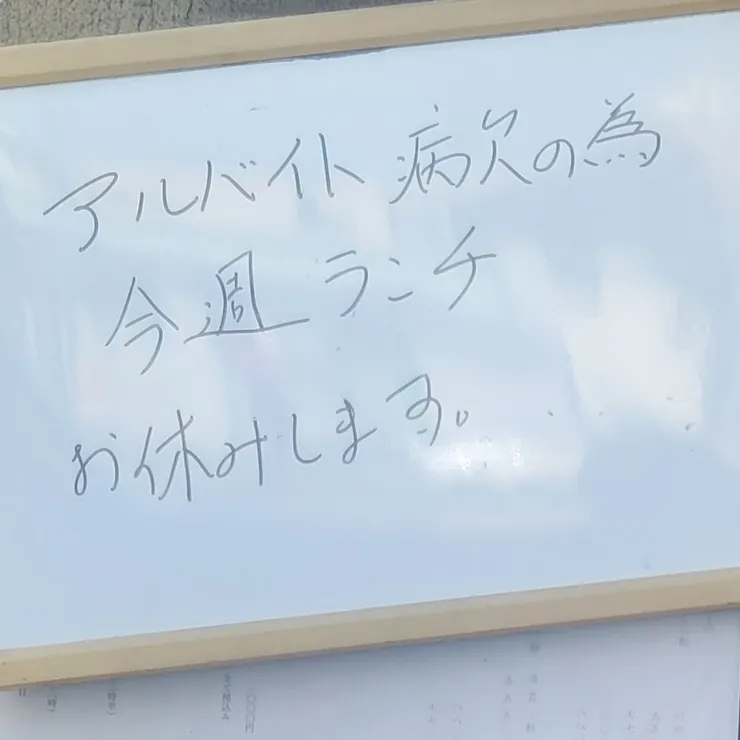 アルバイト病欠の為
今週ランチ
お休みします。